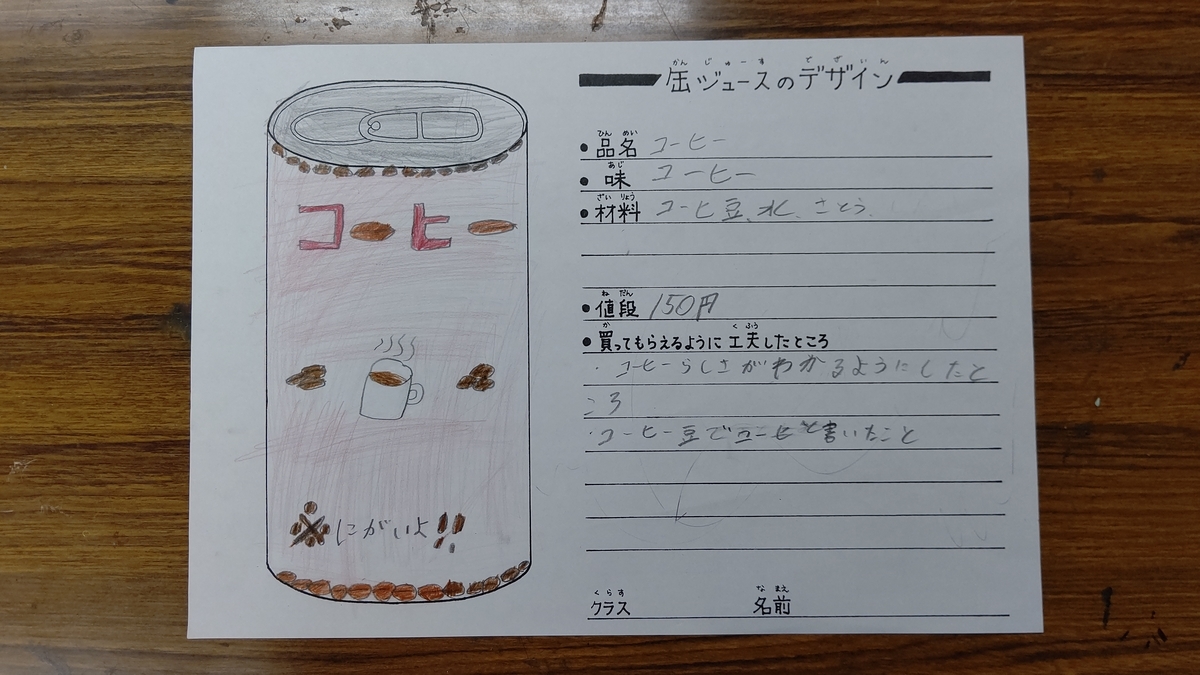 コーヒー
※にがいよ!!
かんじゅーすでざいん
缶ジュースのデザイン
ひんめい
●品名 コーヒー
あじ
●味 コーヒー
ざいりょう
●材料 コーヒ豆、水、さとう、
ねだん
●値段 150円
か くふう
●買ってもらえるように工夫したところ
・コーヒーらしさがわかるようにしたと
ころ
・コーヒー豆でコーヒーと書いたこと
くらす なまえ
クラス 名前